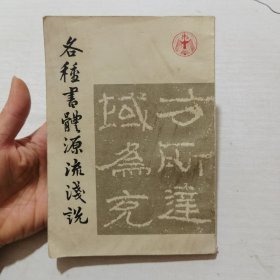 各種書體源流淺說
方所達
域為充